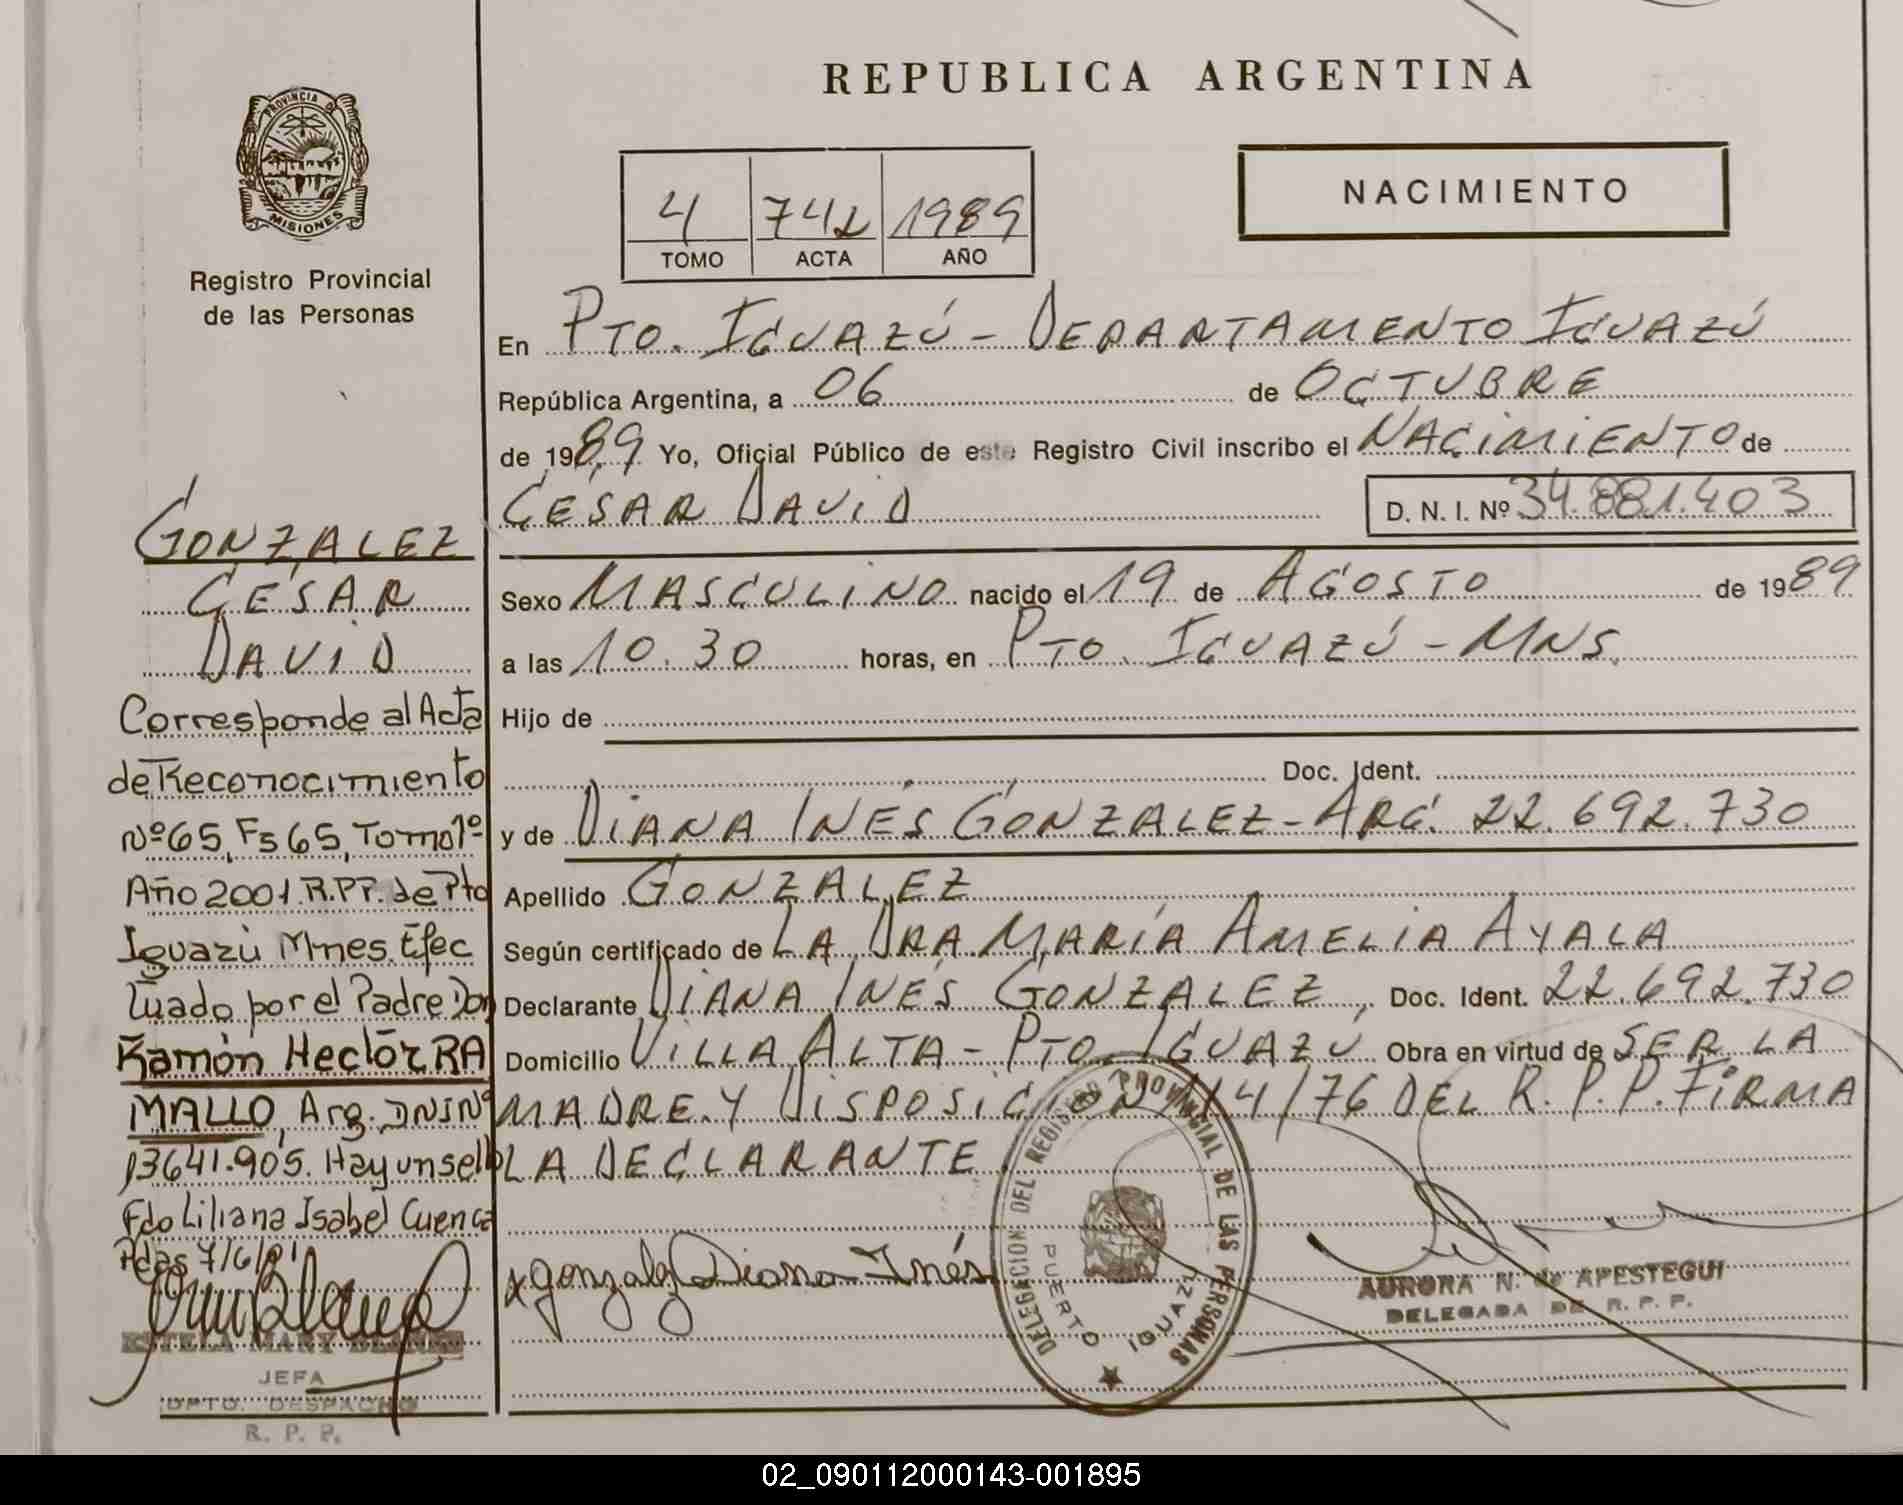 REPUBLICA ARGENTINA
PROVINCIA DE
MISIONES
Registro Provincial
de las Personas
4 742 1989
TOMO ACTA AÑO
NACIMIENTO
En PTO. IGUAZÚ - DEPARTAMENTO IGUAZÚ
República Argentina, a 06 de OCTUBRE
de 1989 Yo, Oficial Público de este Registro Civil inscribo el NACIMIENTO de
CÉSAR DAVID D. N. I. Nº 34.881.403
Sexo MASCULINO nacido el 19 de AGOSTO de 1989
a las 10.30 horas, en PTO. IGUAZÚ - MNS.
Hijo de
Doc. Ident.
y de DIANA INÉS GONZALEZ - ARG. 22.692.730
Apellido GONZALEZ
Según certificado de LA DRA. MARÍA AMELIA AYALA
Declarante DIANA INÉS GONZALEZ, Doc. Ident. 22.692.730
Domicilio VILLA ALTA - PTO. IGUAZÚ Obra en virtud de SER LA
MADRE Y DISPOSICIÓN 114/76 DEL R. P. P. FIRMA
LA DECLARANTE
x gonzalez Diana Inés
DELEGACION DEL REGISTRO PROVINCIAL DE LAS PERSONAS
PUERTO IGUAZU
AURORA N. de APESTEGUI
DELEGADA DE R. P. P.
GONZALEZ
CÉSAR
DAVID
Corresponde al Acta
de Reconocimiento
Nº 65, Fs 65, Tomo 1º
Año 2001. R.PP. de Pto
Iguazú Mnes. Efec
tuado por el Padre Don
Ramón Hector RA
MALLO, Arg. DNI Nº
13641.905. Hay un sello
Fdo Liliana Isabel Cuenca
Pdas 7/6/01
ESTELA MARY
JEFA
DPTO. DESPACHO
R. P. P.
02_090112000143-001895